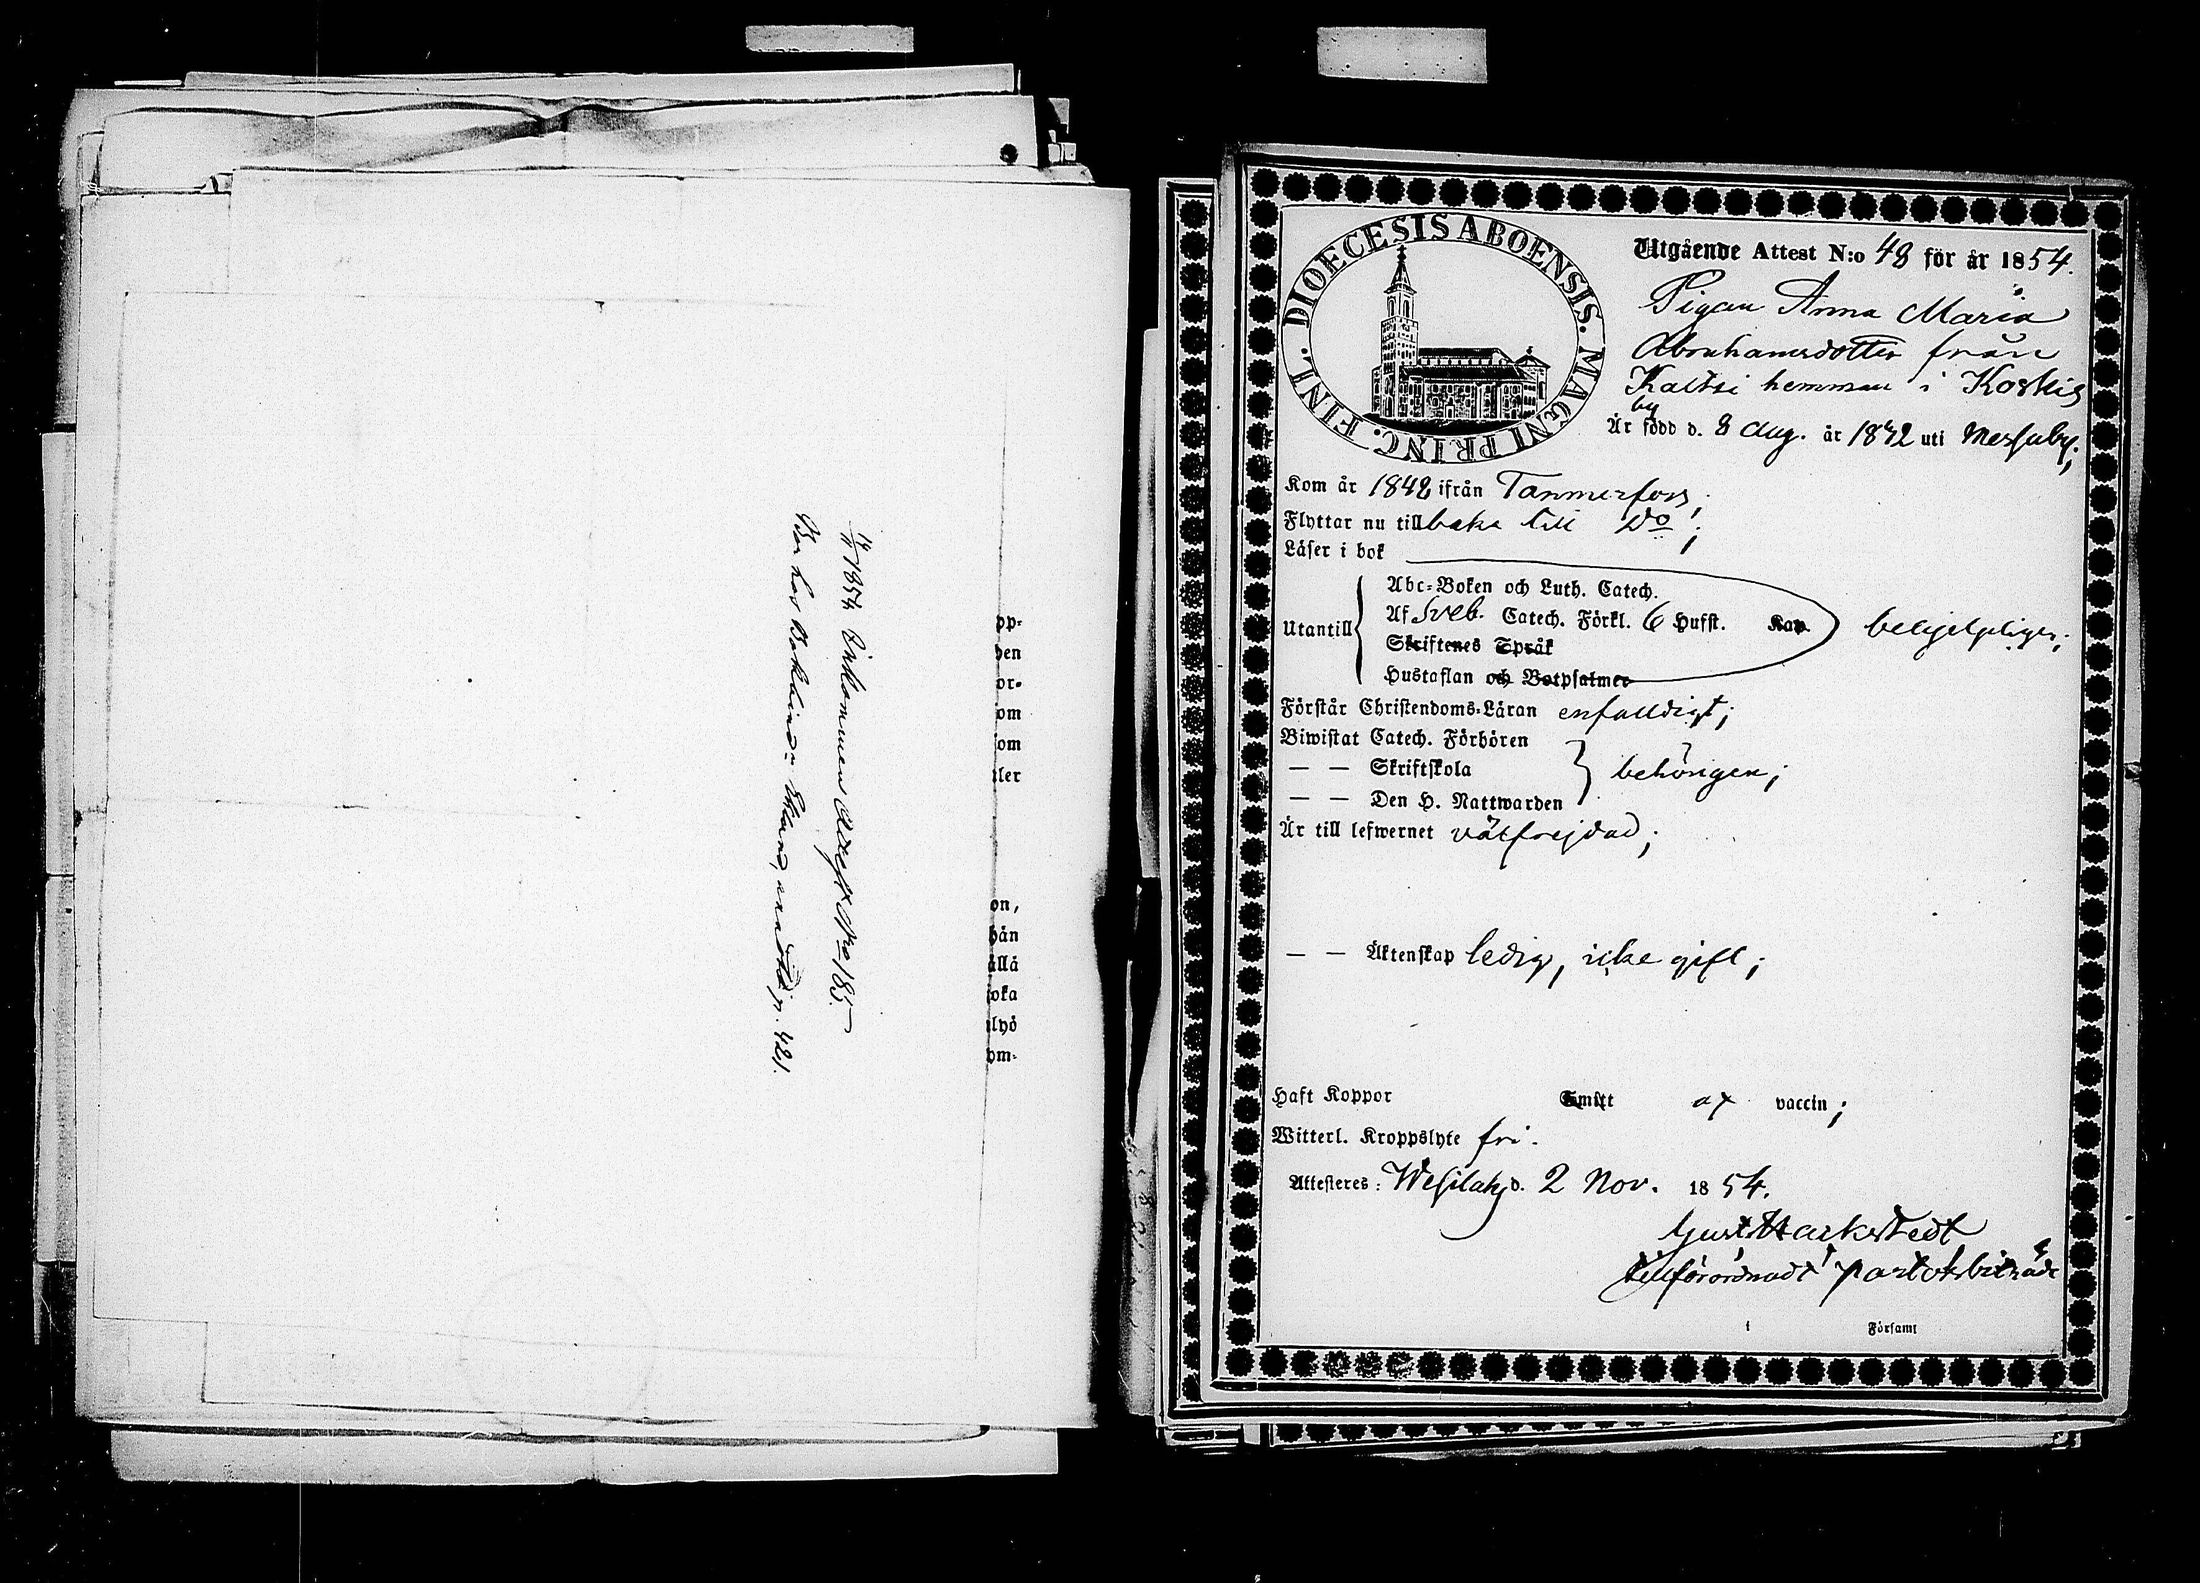 14/11 1854 Inkommen Attest Nro 185.
Bor hos
p. 421.
pp-
den
or-
om
om
ller
on,
hän
ällä
woka
llyö
om-
DIOECESIS ABOENSIS. MAGNI PRINC. FINL.
Utgående Attest N:o 48 för år 1854.
Pigan Anna Maria
Abrahamsdotter från
Kaltsi hemman i Koskis
by
Är född d. 8 Aug. år 1842 uti Messuby;
Kom år 1848 ifrån Tammerfors;
Flyttar nu tillbaka till Do;
Läser i bok
Utantill
Abc-Boken och Luth. Catech.
Af Sveb. Catech. Förkl. 6 Hufst. Kap.
Skriftenes Språk
Hustaflan och Botpsalmer
behjelpligen;
Förstår Christendoms-Läran enfaldigt;
Biwistat Catech. Förhören
— — Skriftskola
behörigen;
— — Den H. Nattwarden
Är till lefwernet välfrejdad;
— — Äktenskap ledig, icke gift;
Haft Koppor Smitt af vaccin;
Witterl. Kroppslyte fri.
Attesteres: Wesilaks d. 2 Nov. 1854.
Gust
tillförordnadt pastorsbiträde
i Församl